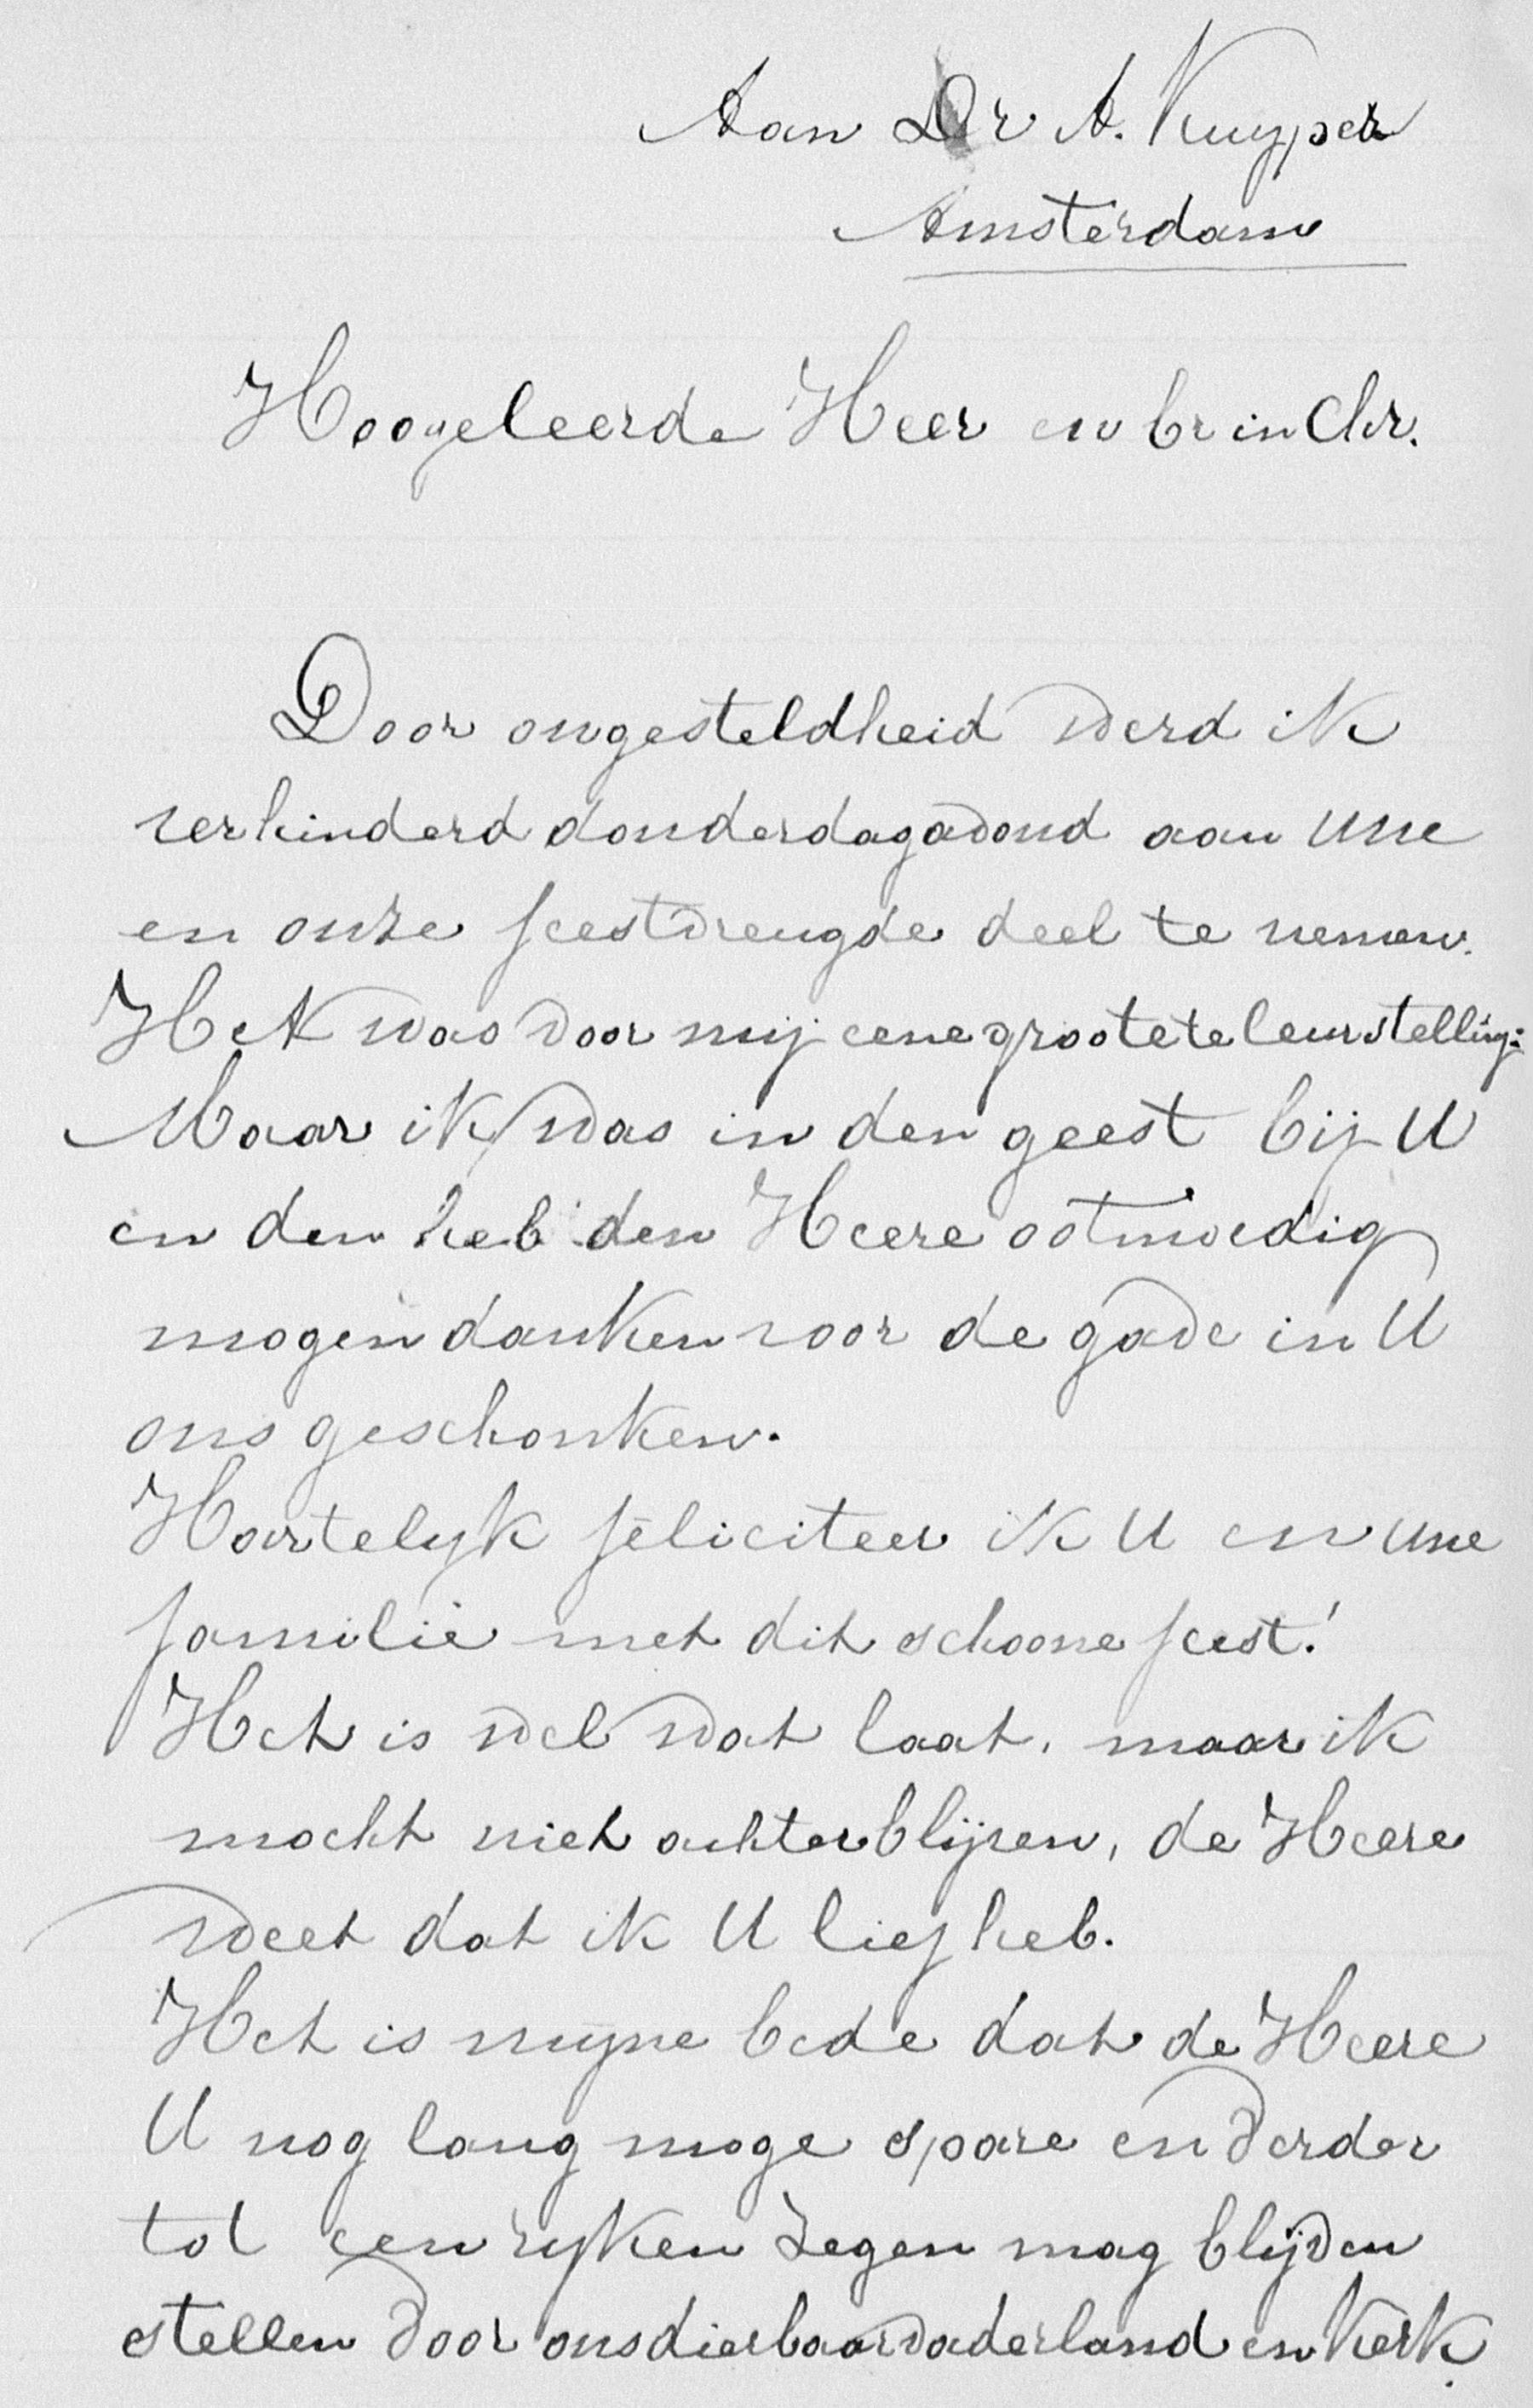 Aan Dr A. Kuyper
Amsterdam
Hoogeleerde Heer en br in Chr.
Door ongesteldheid werd ik
verhinderd donderdagavond aan uwe
en onze feestvreugde deel te nemen.
Het was voor mij eene groote teleurstelling:
Maar ik was in den geest bij U
en den heb den Heere ootmoedig
mogen danken voor de gave in U
ons geschonken.
Hartelyk feliciteer ik U en uwe
familie met dit schoone feest!
Het is wel wat laat, maar ik
mocht niet achterblijven, de Heere
weet dat ik U lief heb.
Het is mijne bede dat de Heere
U nog lang moge spare en verder
tot een ryken zegen mag blijven
stellen voor ons dierbaar vaderland en Kerk.